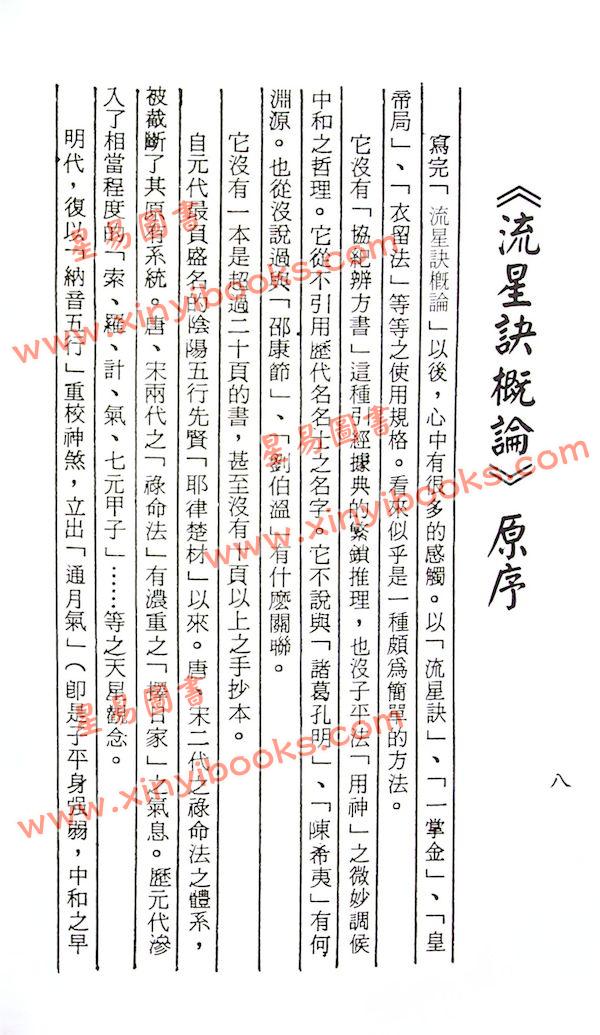 《流星訣概論》原序
寫完「流星訣概論」以後，心中有很多的感觸。以「流星訣」、「一掌金」、「皇
帝局」、「衣留法」等等之使用規格。看來似乎是一種頗為簡單的方法。
它沒有「協紀辨方書」這種引經據典的繁鎖推理，也沒子平法「用神」之微妙調候
中和之哲理。它從不引用歷代名名士之名字。它不說與「諸葛孔明」、「陳希夷」有何
淵源。也從沒說過與「邵康節」、「劉伯溫」有什麼關聯。
它沒有一本是超過二十頁的書，甚至沒有十頁以上之手抄本。
自元代最負盛名的陰陽五行先賢「耶律楚材」以來。唐、宋二代之祿命法之體系，
被截斷了其原有系統。唐、宋兩代之「祿命法」有濃重之「擇日家」之氣息。歷元代滲
入了相當程度的「索、羅、計、氣、七元甲子」……等之天星觀念。
明代，復以「納音五行」重校神煞，立出「通月氣」（即是子平身强弱，中和之早
八
星易圖書
www.xinyibooks.com
星易圖書
www.xinyibooks.com
星易圖書
www.xinyibooks.com